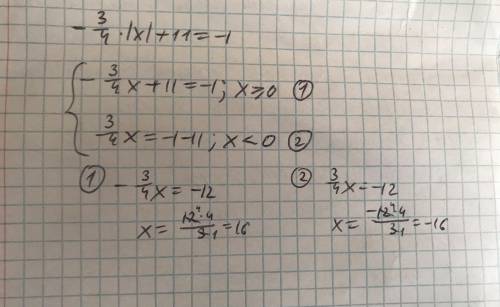 - 3/4 · |x| + 11 = -1
{ - 3/4 x + 11 = -1; x ≥ 0 ①
- 3/4 x = -1 - 11; x < 0 ②
① - 3/4 x = -12
x = 12⁴·4/3₁ = 16
② 3/4 x = -12
x = -12⁴·4/3₁ = -16